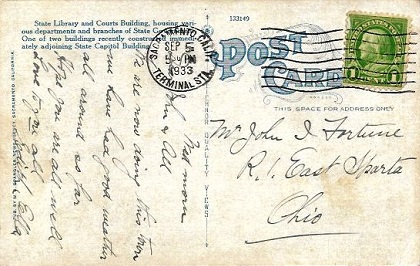 State Library and Courts Building, housing vari-
ous departments and branches of State Go
One of two buildings recently constructed immedi-
ately adjoining State Capitol Building
133149
SACRAMENTO, CALIF.
SEP
5 PM
1933
TERMINAL STA.
POST
CARD
THIS SPACE FOR ADDRESS ONLY
UNITED STATES POSTAGE
1 1
Wed morn
John & All
We are now doing this town
we have had good weather
all around so far
Hope you are all well
Love to you all
Mr John I Fortune
R. 1, East Sparta
Ohio
SACRAMENTO, CALIFORNIA